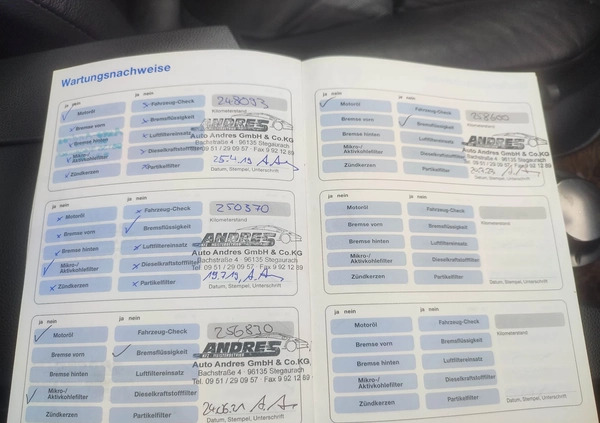 Wartungsnachweise
ja nein ja nein
Motoröl Fahrzeug-Check 248093
Kilometerstand
Bremse vorn Bremsflüssigkeit ANDRES
Bremse hinten Luftfiltereinsatz Auto Andres GmbH & Co.KG
Bachstraße 4 · 96135 Stegaurach
Mikro-/ Aktivkohlefilter Dieselkraftstofffilter Tel. 09 51 / 29 09 57 · Fax 9 92 12 89
25.4.19
Zündkerzen Partikelfilter Datum, Stempel, Unterschrift
Motoröl Fahrzeug-Check 250370
Bremse vorn Bremsflüssigkeit ANDRES
KFZ-MEISTERBETRIEB
Bremse hinten Luftfiltereinsatz Auto Andres GmbH & Co.KG
Bachstraße 4 · 96135 Stegaurach
Mikro-/ Aktivkohlefilter Dieselkraftstofffilter Tel. 09 51 / 29 09 57 · Fax 9 92 12 89
19.7.19
Zündkerzen Partikelfilter Datum, Stempel, Unterschrift
ja nein ja nein
Motoröl Fahrzeug-Check 256830
Bremse vorn Bremsflüssigkeit ANDRES
KFZ-MEISTERBETRIEB
Bremse hinten Luftfiltereinsatz Auto Andres GmbH & Co.KG
Bachstraße 4 · 96135 Stegaurach
Mikro-/ Aktivkohlefilter Dieselkraftstofffilter Tel. 09 51 / 29 09 57 · Fax 9 92 12 89
Zündkerzen Partikelfilter Datum, Stempel, Unterschrift
ja nein ja nein
Motoröl Fahrzeug-Check 258600
Kilometerstand
Bremse vorn Bremsflüssigkeit ANDRES
Bremse hinten Luftfiltereinsatz Auto Andres GmbH & Co.KG
Bachstraße 4 · 96135 Stegaurach
Mikro-/ Aktivkohlefilter Dieselkraftstofffilter Tel. 09 51 / 29 09 57 · Fax 9 92 12 89
Zündkerzen Partikelfilter Datum, Stempel, Unterschrift
Motoröl Fahrzeug-Check
Bremse vorn Bremsflüssigkeit
Bremse hinten Luftfiltereinsatz
Mikro-/ Aktivkohlefilter Dieselkraftstofffilter
Zündkerzen Partikelfilter Datum, Stempel, Unterschrift
ja nein ja nein
Motoröl Fahrzeug-Check
Kilometerstand
Bremse vorn Bremsflüssigkeit
Bremse hinten Luftfiltereinsatz
Mikro-/ Aktivkohlefilter Dieselkraftstofffilter
Zündkerzen Partikelfilter Datum, Stempel, Unterschrift